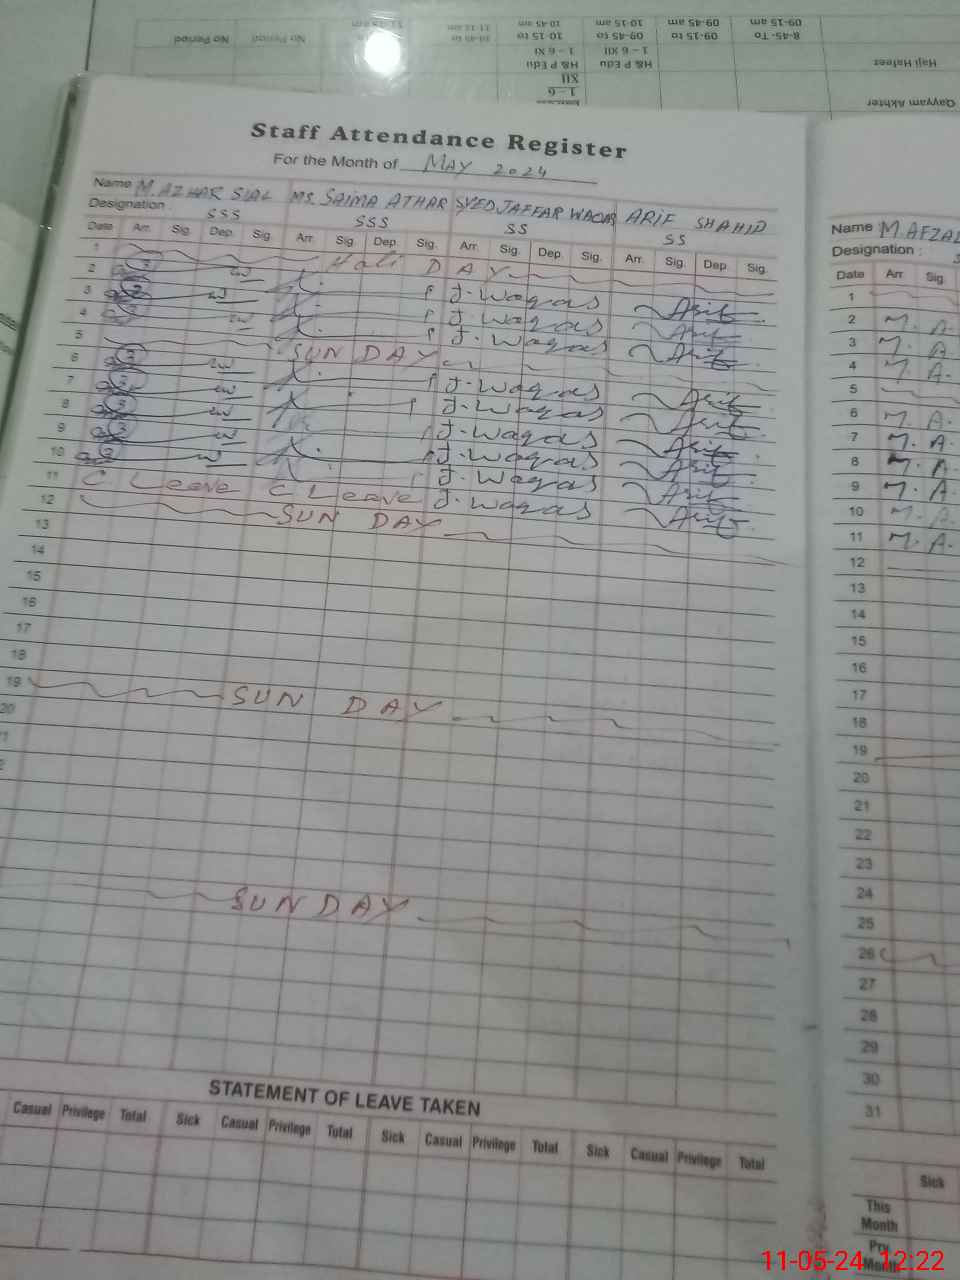 09-15 am 09-45 am 10-15 am 10-45 am 11-15 am
8-45- To 09-15 to 09-45 to 10-15 to 10-45 to No Period No Period
Haji Hafeer H& P Edu 1 - 6 XII H& P Edu 1 - 6 XI
Qayyam Akhter 1 - 6 XII
Staff Attendance Register
For the Month of MAY 2024
Name M. AZHAR SIAL MS. SAIMA ATHAR SYED JAFFAR WAQAR ARIF SHAHID
Designation : SSS SSS SS SS
Date Arr. Sig. Dep. Sig. Arr. Sig. Dep. Sig. Arr. Sig. Dep. Sig. Arr. Sig. Dep. Sig.
1 Holi DAY
2 J. Waqas Arif
3 J. Waqas Arif
4 J. Waqas Arif
5 SUN DAY
6 J. Waqas Arif
7 J. Waqas Arif
8 J. Waqas Arif
9 J. Waqas Arif
10 J. Waqas Arif
11 C Leave C Leave J. Waqas Arif
12 SUN DAY
13
14
15
16
17
18
19 SUN DAY
20
SUN DAY
STATEMENT OF LEAVE TAKEN
Casual Privilege Total Sick Casual Privilege Total Sick Casual Privilege Total Sick Casual Privilege Total
Name M. AFZAL
Designation :
Date Arr. Sig.
1
2 M. A.
3 M. A.
4 M. A.
5
6 M. A.
7 M. A.
8 M. A.
9 M. A.
10 M. A.
11 M. A.
12
13
14
15
16
17
18
19
20
21
22
23
24
25
26
27
28
29
30
31
Sick
This Month
Prv. Month
11-05-24 12:22